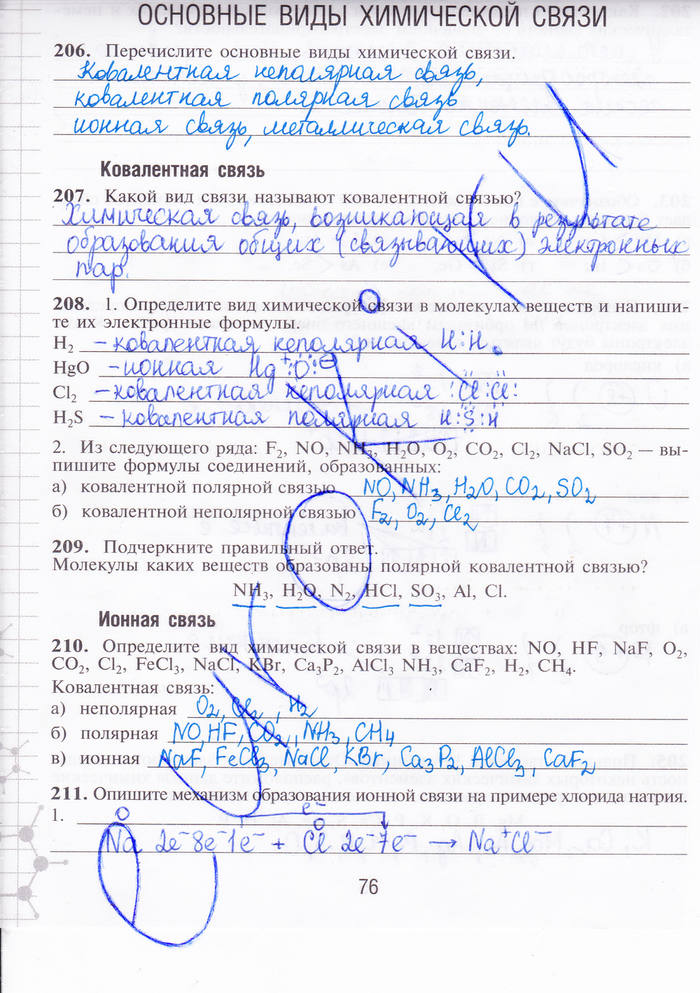 ОСНОВНЫЕ ВИДЫ ХИМИЧЕСКОЙ СВЯЗИ
206. Перечислите основные виды химической связи.
Ковалентная неполярная связь,
ковалентная полярная связь
ионная связь, металлическая связь.
Ковалентная связь
207. Какой вид связи называют ковалентной связью?
Химическая связь, возникающая в результате
образования общих (связывающих) электронных
пар.
208. 1. Определите вид химической связи в молекулах веществ и напиши-
те их электронные формулы.
H₂ – ковалентная неполярная H : H.
HgO – ионная Hg⁺ :O:⁻
Cl₂ – ковалентная неполярная :Cl:Cl:
H₂S – ковалентная полярная H:S:H
2. Из следующего ряда: F₂, NO, NH₃, H₂O, O₂, CO₂, Cl₂, NaCl, SO₂ — вы-
пишите формулы соединений, образованных:
а) ковалентной полярной связью NO, NH₃, H₂O, CO₂, SO₂
б) ковалентной неполярной связью F₂, O₂, Cl₂
209. Подчеркните правильный ответ.
Молекулы каких веществ образованы полярной ковалентной связью?
NH₃, H₂O, N₂, HCl, SO₃, Al, Cl.
Ионная связь
210. Определите вид химической связи в веществах: NO, HF, NaF, O₂,
CO₂, Cl₂, FeCl₃, NaCl, KBr, Ca₃P₂, AlCl₃, NH₃, CaF₂, H₂, CH₄.
Ковалентная связь:
а) неполярная O₂, Cl₂, H₂
б) полярная NO, HF, CO₂, NH₃, CH₄
в) ионная NaF, FeCl₃, NaCl, KBr, Ca₃P₂, AlCl₃, CaF₂
211. Опишите механизм образования ионной связи на примере хлорида натрия.
1. e⁻
Na 2e⁻8e⁻1e⁻ + Cl 2e⁻7e⁻ → Na⁺Cl⁻
76